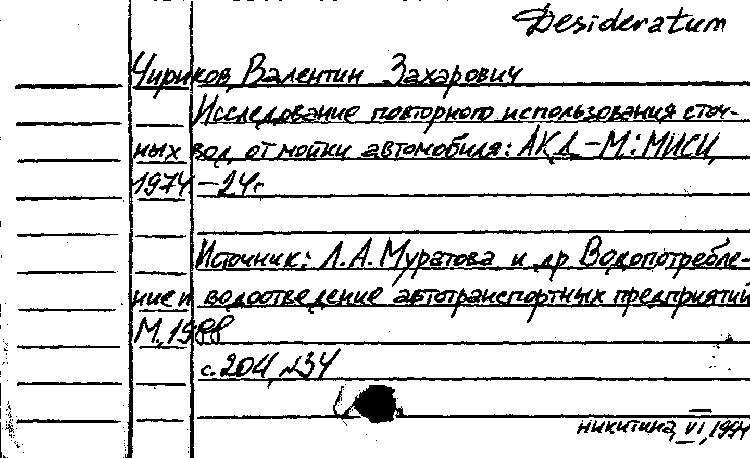 Desideratum
Чириков Валентин Захарович
Исследование повторного использования сточ-
ных вод от мойки автомобиля: АКД. – М.: МИСИ,
1974 – 24с
Источник: Л.А. Муратова и др Водопотребле-
ние и водоотведение автотранспортных предприятий
М., 1988
с. 204, №34
никитина, VI, 1991